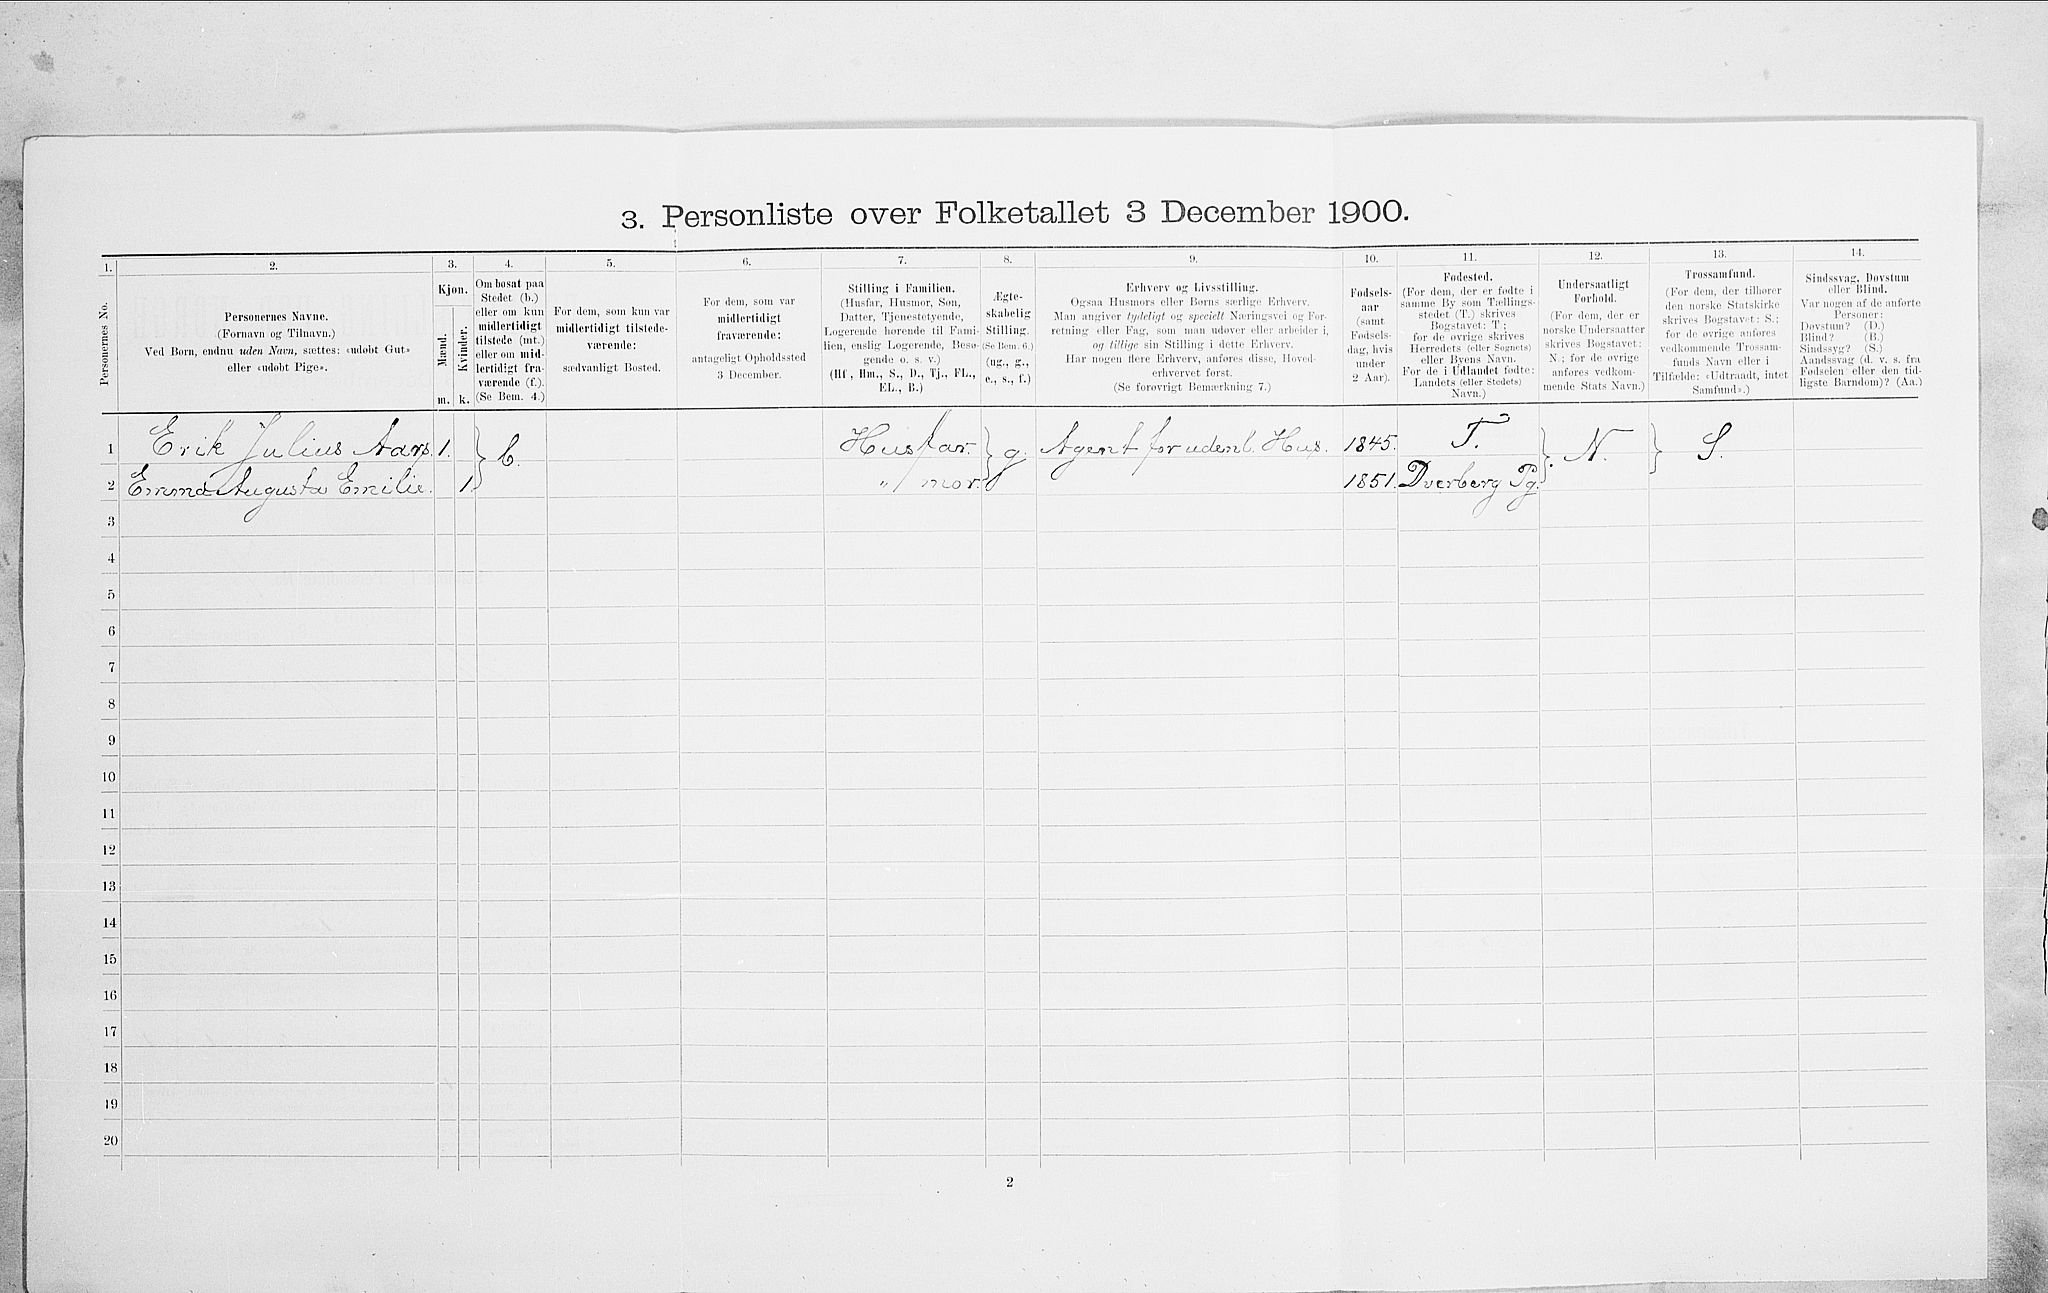 3. Personliste over Folketallet 3 December 1900.
1. 2. 3. 4. 5. 6. 7. 8. 9. 10. 11. 12. 13. 14.
Personernes No.
Personernes Navne.
(Fornavn og Tilnavn.)
Ved Børn, endnu uden Navn, sættes: «udøbt Gut»
eller «udøbt Pige».
Kjøn.
Mænd.
Kvinder.
m. k.
Om bosat paa
Stedet (b.)
eller om kun
midlertidigt
tilstede (mt.)
eller om mid-
lertidigt fra-
værende (f.).
(Se Bem. 4.)
For dem, som kun var
midlertidigt tilstede-
værende:
sædvanligt Bosted.
For dem, som var
midlertidigt
fraværende:
antageligt Opholdssted
3 December.
Stilling i Familien.
(Husfar, Husmor, Søn,
Datter, Tjenestetyende,
Logerende hørende til Fami-
lien, enslig Logerende, Besø-
gende o. s. v.)
(Hf., Hm., S., D., Tj., FL.,
EL., B.)
Ægte-
skabelig
Stilling.
(Se Bem. 6.)
(ug., g.,
e., s., f.)
Erhverv og Livsstilling.
Ogsaa Husmors eller Børns særlige Erhverv.
Man angiver tydeligt og specielt Næringsvei og For-
retning eller Fag, som man udøver eller arbeider i,
og tillige sin Stilling i dette Erhverv.
Har nogen flere Erhverv, anføres disse, Hoved-
erhvervet først.
(Se forøvrigt Bemærkning 7.)
Fødsels-
aar
(samt
Fødsels-
dag, hvis
under
2 Aar).
Fødested.
(For dem, der er fødte i
samme By som Tællings-
stedet (T.) skrives
Bogstavet: T.;
for de øvrige skrives
Herredets (eller Sognets)
eller Byens Navn.
For de i Udlandet fødte:
Landets (eller Stedets)
Navn.)
Undersaatligt
Forhold.
(For dem, der er
norske Undersaatter
skrives Bogstavet:
N.; for de øvrige
anføres vedkom-
mende Stats Navn.)
Trossamfund.
(For dem, der tilhører
den norske Statskirke
skrives Bogstavet: S.;
for de øvrige anføres
vedkommende Trossam-
funds Navn eller i
Tilfælde: «Udtraadt, intet
Samfund».)
Sindssvag, Døvstum
eller Blind.
Var nogen af de anførte
Personer:
Døvstum? (D.)
Blind? (B.)
Sindssyg? (S.)
Aandssvag (d. v. s. fra
Fødselen eller den tid-
ligste Barndom)? (Aa.)
1 Erik Julius Aars. 1. b. Husfar. g. Agent for udenl. Hus. 1845. T. N. S.
2 Emma Augusta Emilie. 1. „ mor. 1851. Dverberg Pg.
3
4
5
6
7
8
9
10
11
12
13
14
15
16
17
18
19
20
2